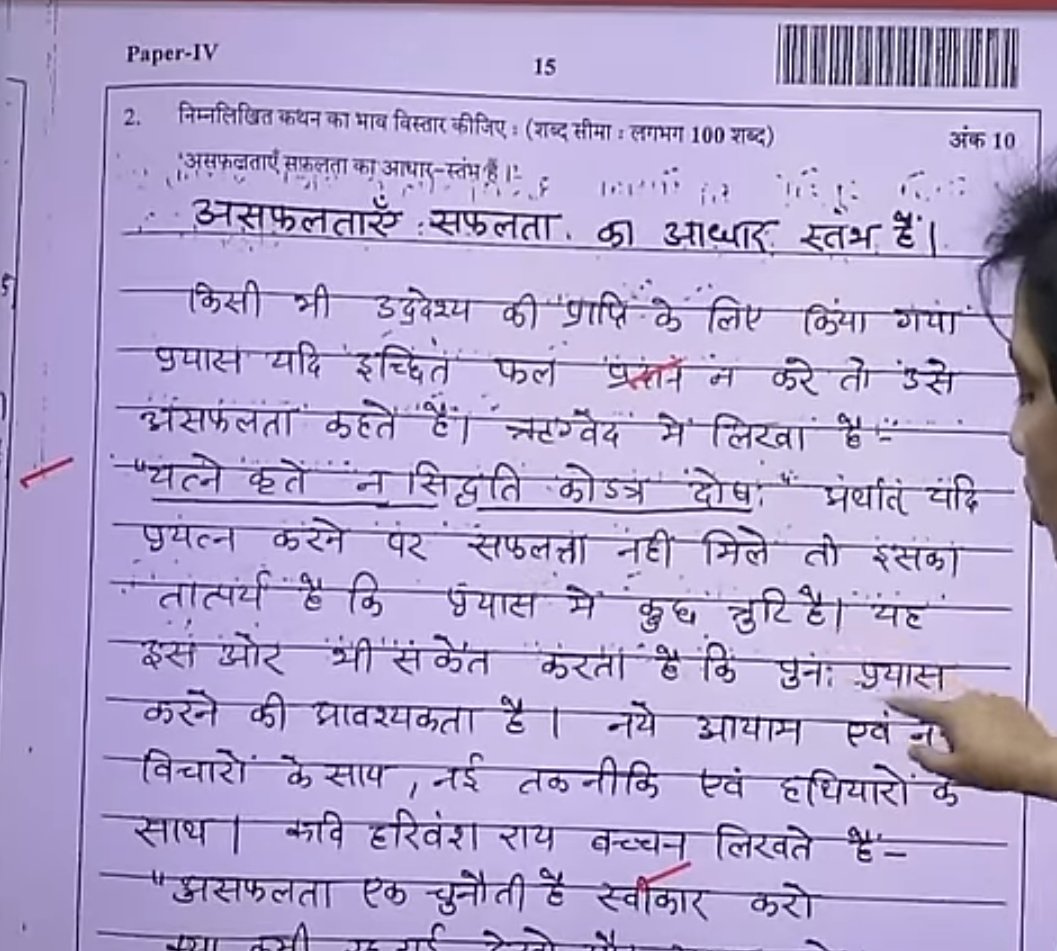 Paper-IV
15
2. निम्नलिखित कथन का भाव विस्तार कीजिए : (शब्द सीमा : लगभग 100 शब्द) अंक 10
'असफलताएँ सफलता का आधार-स्तंभ हैं।'
असफलताएँ सफलता का आधार स्तंभ हैं।
किसी भी उद्देश्य की प्राप्ति के लिए किया गया
प्रयास यदि इच्छित फल न करे तो उसे
असफलता कहते हैं। ऋग्वेद में लिखा है -
"यत्ने कृते न सिद्धति कोऽत्र दोषः" अर्थात् यदि
प्रयत्न करने पर सफलता नहीं मिले तो इसका
तात्पर्य है कि प्रयास में कुछ त्रुटि है। यह
इस ओर भी संकेत करता है कि पुनः प्रयास
करने की आवश्यकता है। नये आयाम एवं
विचारों के साथ, नई तकनीकि एवं हथियारों के
साथ। कवि हरिवंश राय बच्चन लिखते है -
"असफलता एक चुनौती है स्वीकार करो